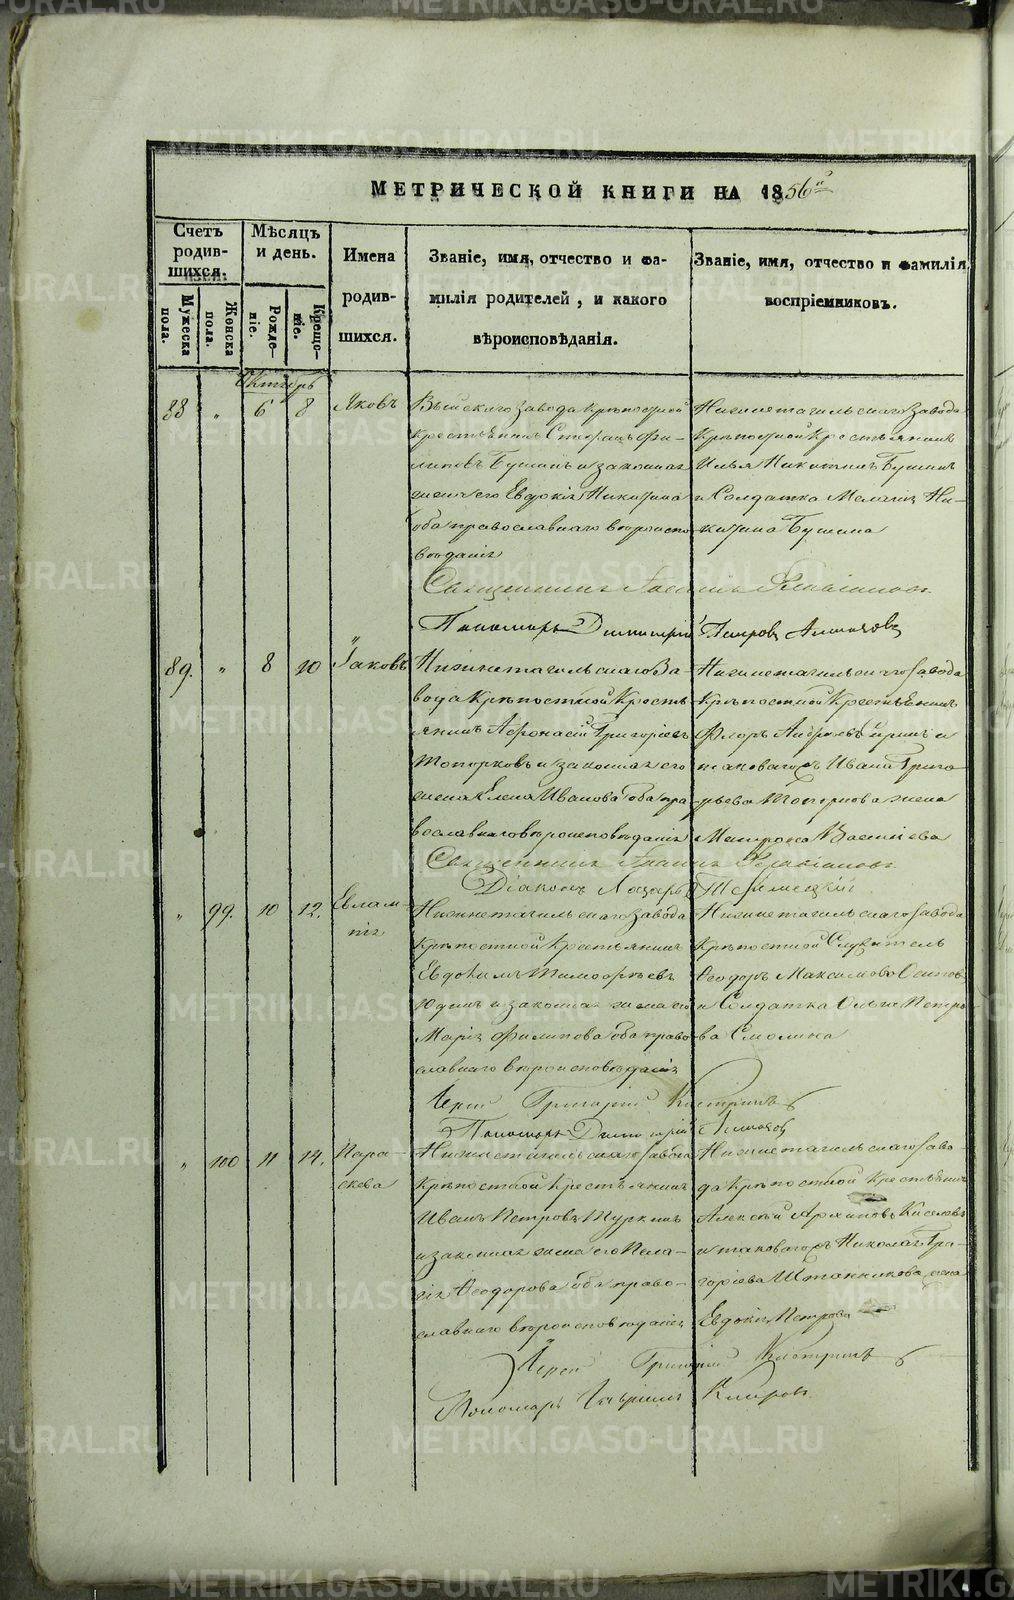 МЕТРИЧЕСКОЙ КНИГИ НА 1856й
Счетъ родившихся.
Мѣсяцъ и день.
Имена родившихся.
Званіе, имя, отчество и фамилія родителей, и какого вѣроисповѣданія.
Званіе, имя, отчество и фамилія воспріемниковъ.
Мужеска пола.
Женска пола.
Рожденіе.
Крещеніе.
Октябрь
88 „ 6 8 Яковъ
Выйскаго завода крѣпостной
крестьянинъ Фи-
липовъ Бушинъ и законная
жена его Евдокія Никитина
оба православнаго вѣроиспо
вѣданія
Нижнетагильскаго завода
крѣпостной крестьянинъ
Илья Никитинъ Бушинъ
и Солдатка Ни-
китина Бушина
Священникъ
Пономарь Димитрій Петровъ
89. „ 8 10 Іаковъ
Нижнетагильскаго за-
вода крѣпостной кресть
янинъ Афонасій Григорьевъ
Топорковъ и законная его
жена Елена Иванова оба пра
вославнаго вѣроисповѣданія
Нижнетагильскаго завода
крѣпостной крестьянинъ
Флоръ Андреевъ и
таковагожъ Ивана Григо
рьева Топоркова жена
Матрона Васильева
Священникъ
Діаконъ Лазарь
„ 99. 10 12. Евлам-
пія
Нижнетагильскаго завода
крѣпостной крестьянинъ
Евдокимъ Тимофѣевъ
Юдинъ и законная жена его
Марія Филипова оба право
славнаго вѣроисповѣданія
Нижнетагильскаго завода
крѣпостной Служитель
Ѳеодоръ Максимовъ
и Солдатка Ольга Петро
ва Смолина
Іерей Григорій
Пономарь Димитрій
„ 100 11 14. Пара-
скева
Нижнетагильскаго завода
крѣпостной крестьянинъ
Иванъ Петровъ Шуркинъ
и законная жена его Пела-
гія Ѳеодорова оба право-
славнаго вѣроисповѣданія
Нижнетагильскаго заво-
да крѣпостной крестьянинъ
Алексѣй Архиповъ Киселевъ
и таковагожъ Николая Гри-
горіева жена
Евдокія Петрова
Іерей Григорій
Пономарь Гавріилъ
METRIKI.GASO-URAL.RU